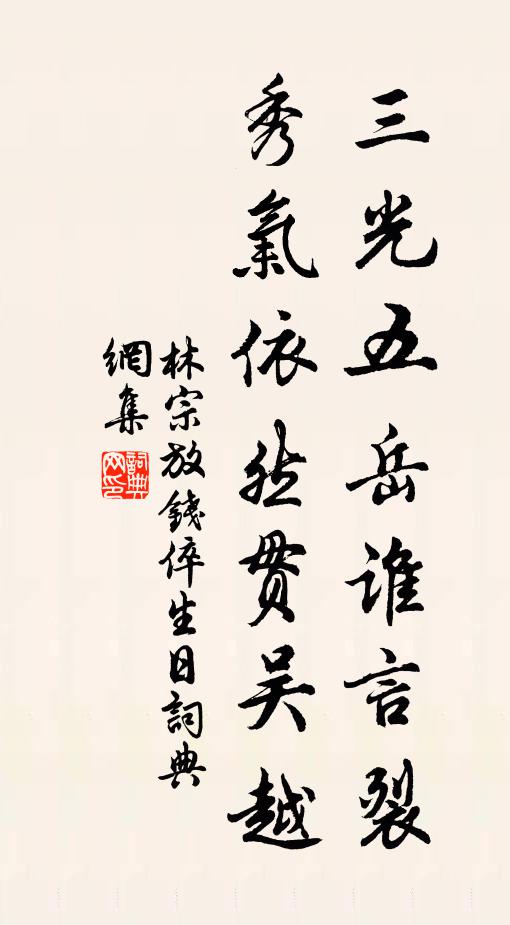 三光五岳谁言裂
秀氣依然贯吴越
林宗放錢倅生日詞典
網集
詞典
网印